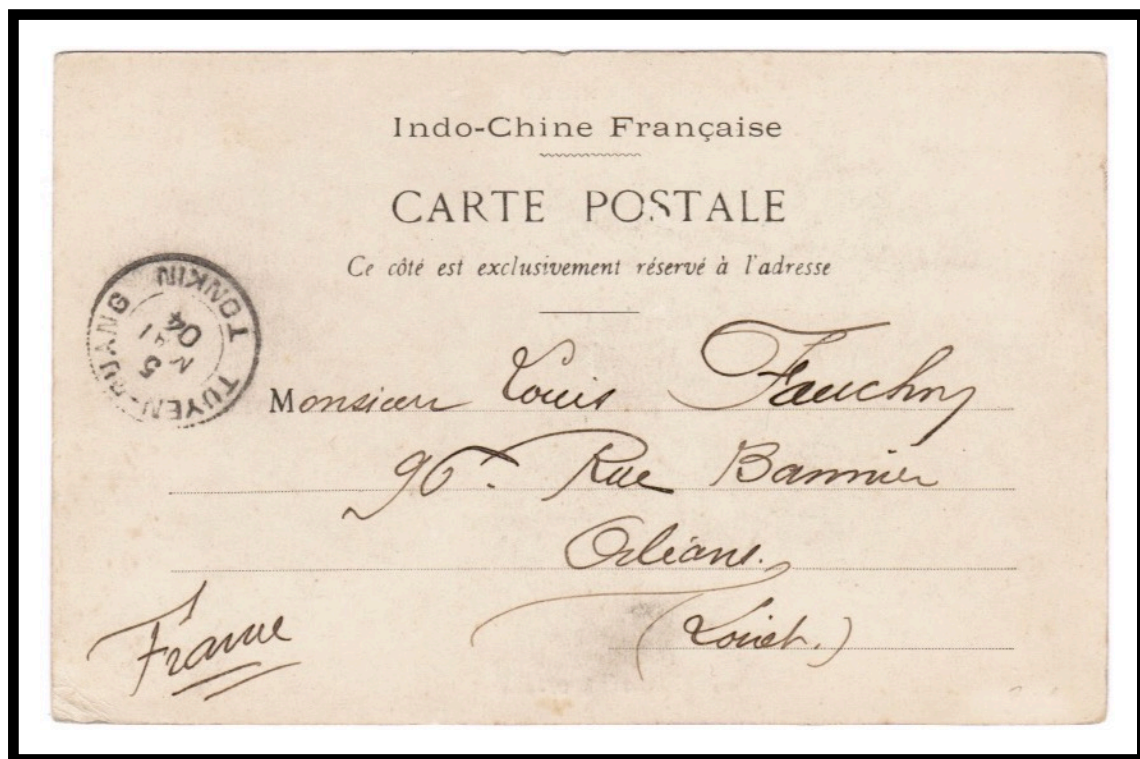 Indo-Chine Française
CARTE POSTALE
Ce côté est exclusivement réservé à l'adresse
TUYEN-QUANG TONKIN
5
MAI
04
Monsieur Louis
96 Rue Bannier
Orléans.
(Loiret.)
France